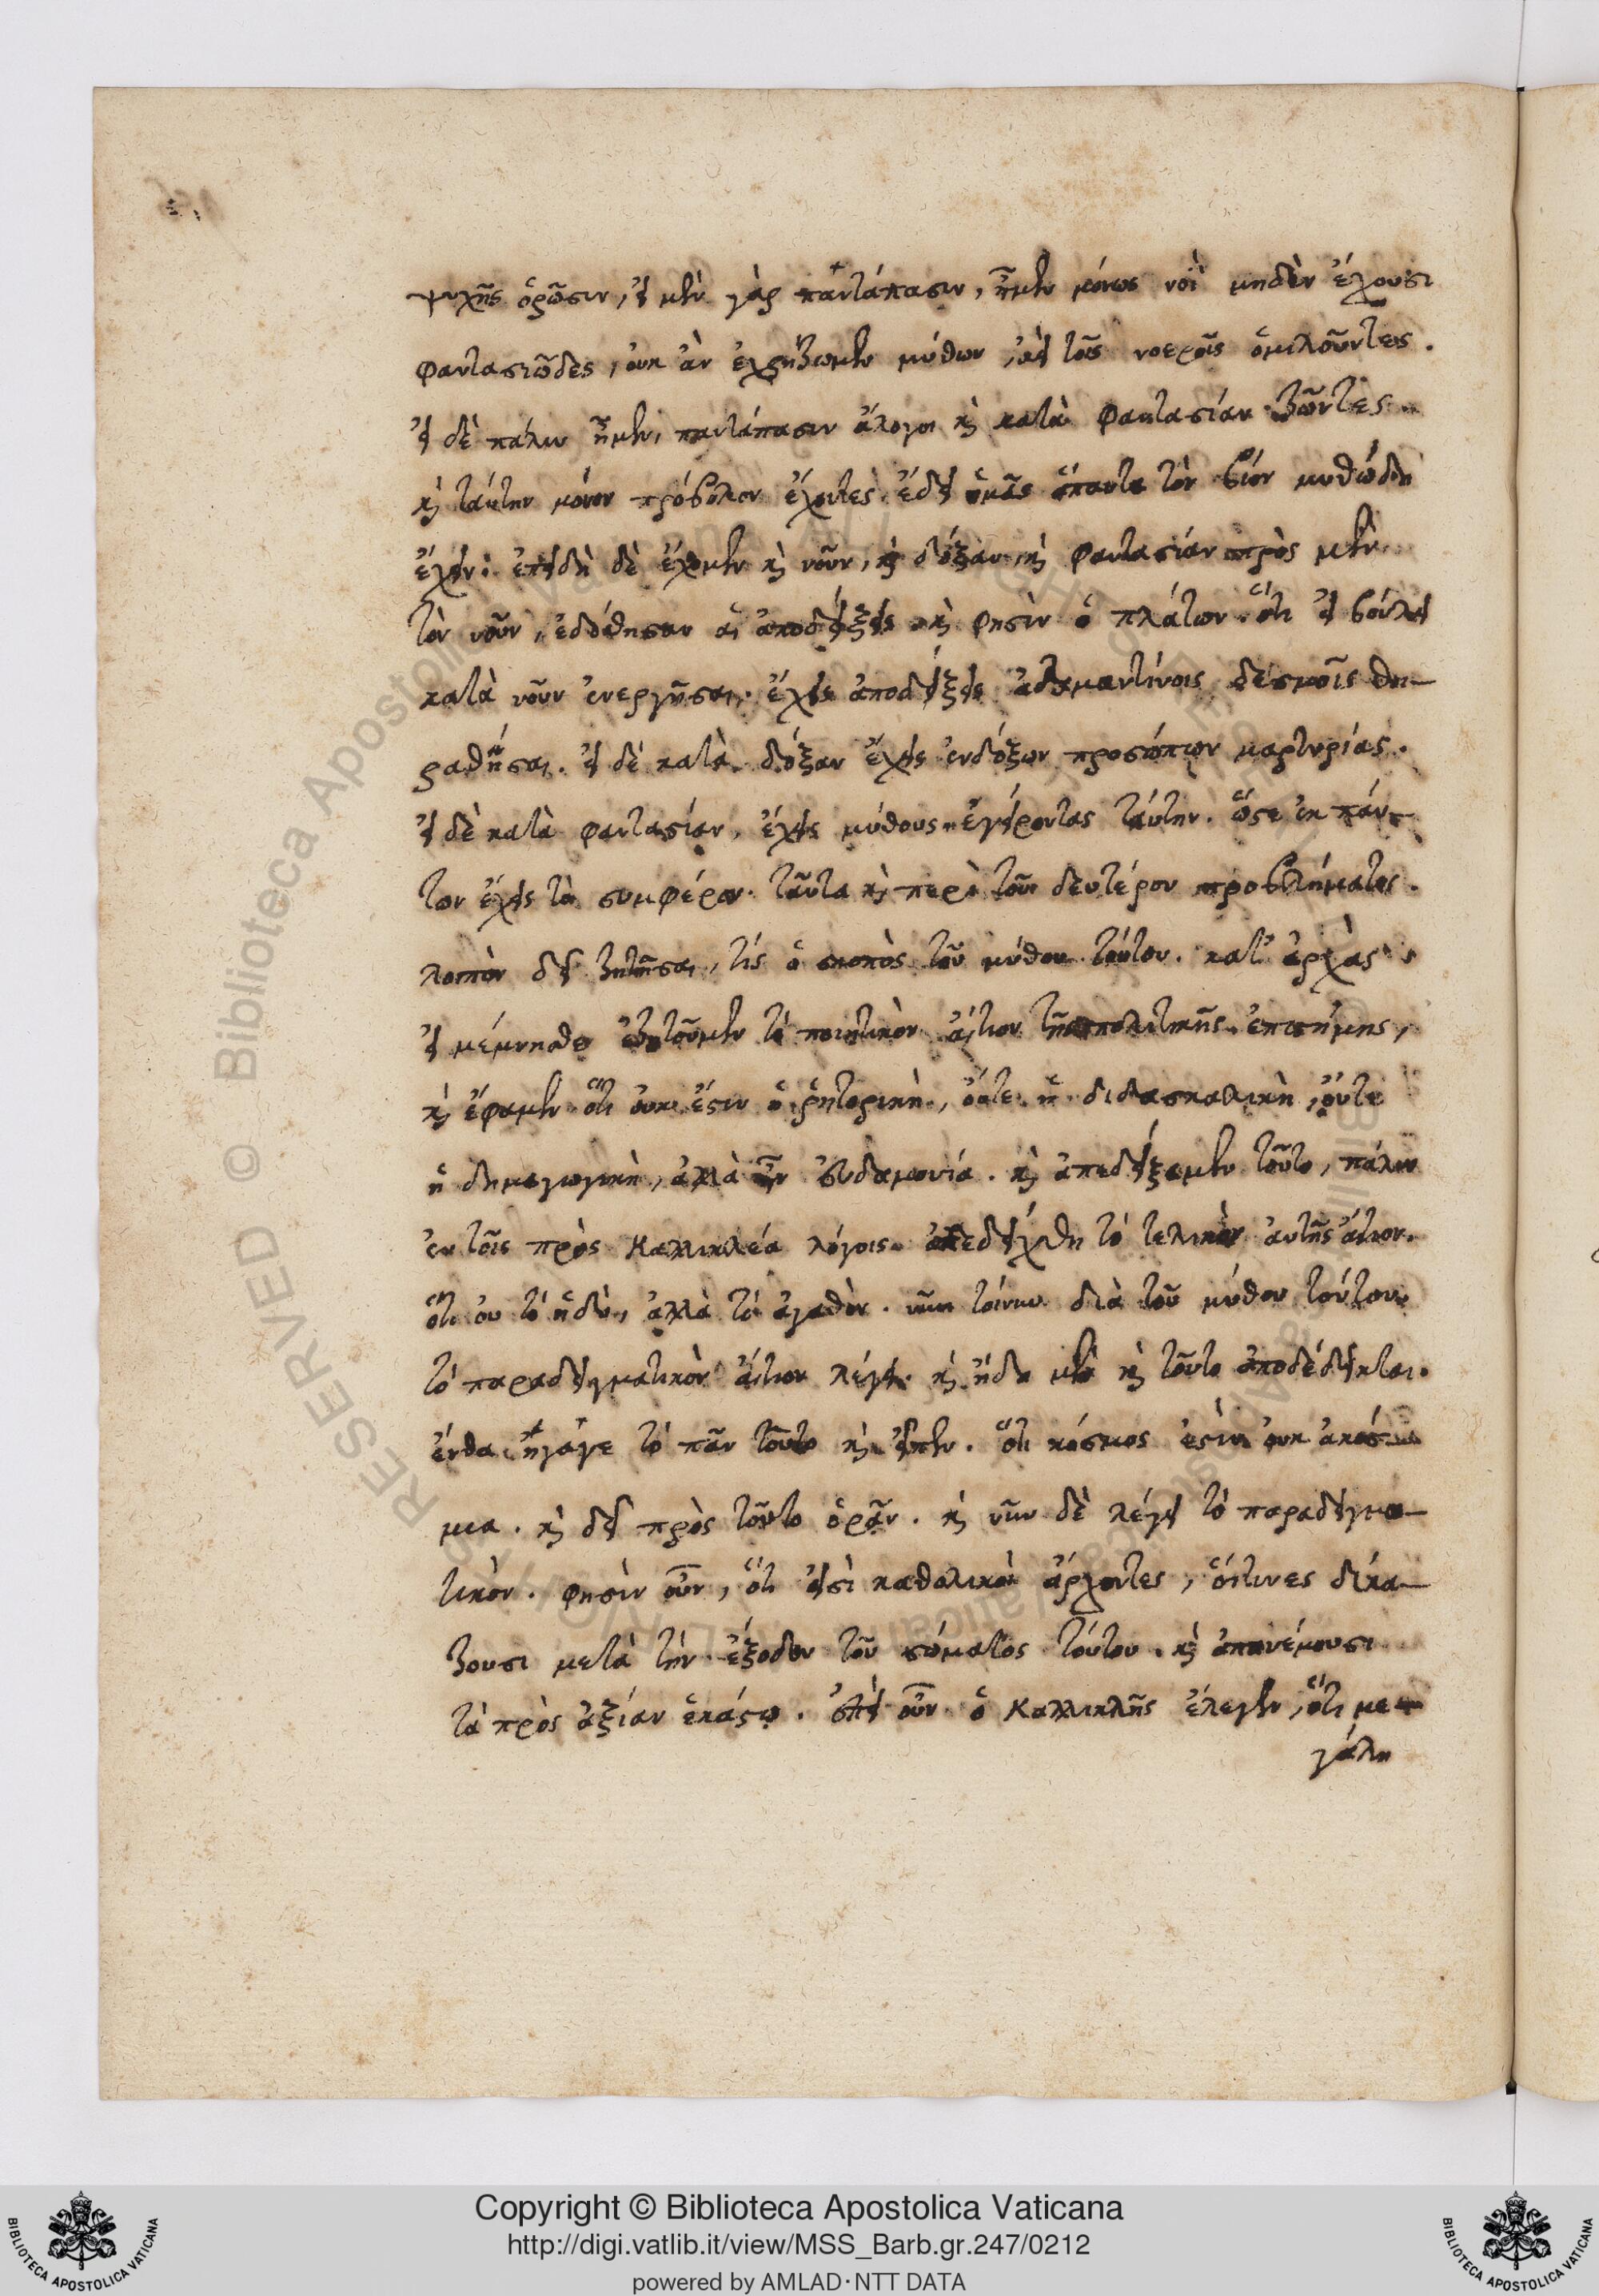 ψυχῆς ὁρῶσιν, εἰ μὲν γὰρ παντάπασιν, ἦμεν μόνως νοῒ μηδὲν ἔχουσι
φαντασιῶδες, οὐκ ἂν ἐχρῄζομεν μύθων, ἀεὶ τοῖς νοεροῖς ὁμιλοῦντες.
εἰ δὲ πάλιν ἦμεν, παντάπασιν ἄλογοι καὶ κατὰ φαντασίαν ζῶντες
καὶ ταύτην μόνον πρόβολον ἔχοντες. ἔδει ἡμᾶς ἅπαντα τὸν βίον μυθώδη
ἔχειν. ἐπειδὴ δὲ ἔχομεν καὶ νοῦν, καὶ δόξαν, καὶ φαντασίαν πρὸς μὲν
τὸν νοῦν, ἐδόθησαν αἱ ἀποδείξεις καὶ φησὶν ὁ πλάτων ὅτι εἰ βούλει
κατὰ νοῦν ἐνεργῆσαι. ἔχεις ἀποδείξεις ἀδαμαντίνοις δεσμοῖς θη-
ραθῆσαι. εἰ δὲ κατὰ δόξαν ἔχεις ἐνδόξων προσώπων μαρτυρίας.
εἰ δὲ κατὰ φαντασίαν, ἔχεις μύθους ἐγείροντας ταύτην. ὥστε ἐκ πάν-
των ἔχεις τὸ συμφέρον. ταῦτα καὶ περὶ τοῦ δευτέρου προβλήματος.
λοιπὸν δεῖ ζητῆσαι, τίς ὁ σκοπὸς τοῦ μύθου τούτου. κατ' ἀρχὰς
εἰ μέμνησθε ἐζητοῦμεν τὸ ποιητικὸν αἴτιον τῆς πολιτικῆς ἐπιστήμης,
καὶ ἔφαμεν ὅτι οὐκ ἔστιν ἡ ῥητορικὴ, οὔτε ἡ διδασκαλικὴ, οὔτε
ἡ δημαγωγικὴ, ἀλλὰ ἦν εὐδαιμονία. καὶ ἀπεδείξαμεν τοῦτο, πάλιν
ἐν τοῖς πρὸς Καλλικλέα λόγοις ἀπεδείχθη τὸ τελικὸν αὐτῆς αἴτιον.
ὅτι οὐ τὸ ἡδὺ, ἀλλὰ τὸ ἀγαθόν. νῦν τοίνυν διὰ τοῦ μύθου τούτου
τὸ παραδειγματικὸν αἴτιον λέγει. καὶ ἤδη μὲν καὶ τοῦτο ἀποδέδεικται.
ἔνθα ἤγαγε τὸ πᾶν τοῦτο καὶ εἶπεν. ὅτι κόσμος ἐστὶν οὐκ ἀκοσ-
μια. καὶ δεῖ πρὸς τοῦτο ὁρᾶν. καὶ νῦν δὲ λέγει τὸ παραδειγμα-
τικόν. φησὶν οὖν, ὅτι εἰσὶ καθολικοὶ ἄρχοντες, οἵτινες δικά-
ζουσι μετὰ τὴν ἔξοδον τοῦ σώματος τούτου. καὶ ἀπονέμουσι
τὰ πρὸς ἀξίαν ἑκάστῳ. ἐπεὶ οὖν ὁ Καλλικλῆς ἔλεγεν, ὅτι με-
γάλη
Copyright © Biblioteca Apostolica Vaticana
http://digi.vatlib.it/view/MSS_Barb.gr.247/0212
powered by AMLAD·NTT DATA